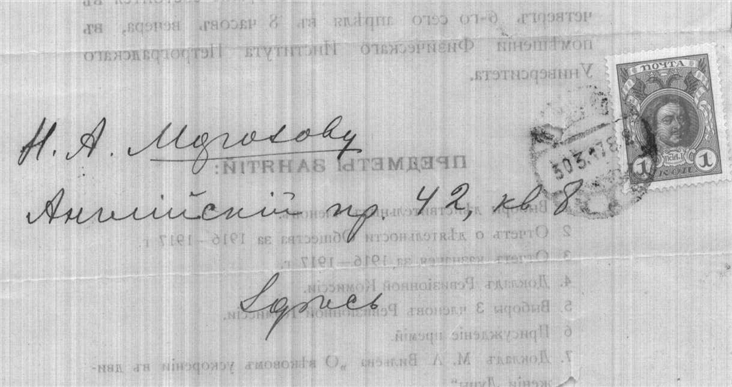 четвергъ 6-го сего апрѣля въ 8 часовъ вечера, въ
помѣщеніи Физическаго Института Петроградскаго
Университета.
ПОЧТА
1 КОП 1
30.3.17.8
Н. А. Морозову
ПРЕДМЕТЫ ЗАНЯТІЙ:
Англійскій пр. 42, кв 8
Выборы дѣйствительныхъ
2 Отчетъ о дѣятельности Общества за 1916—1917 г
3 Отчетъ казначея за 1916—1917 г.
Здѣсь
4. Докладъ Ревизіонной Комиссіи.
5. Выборы 3 членовъ Ревизіонной Комиссіи.
6 Присужденіе премій.
7. Докладъ М. А Вильева „О вѣковомъ ускореніи въ дви-
женіи Луны“